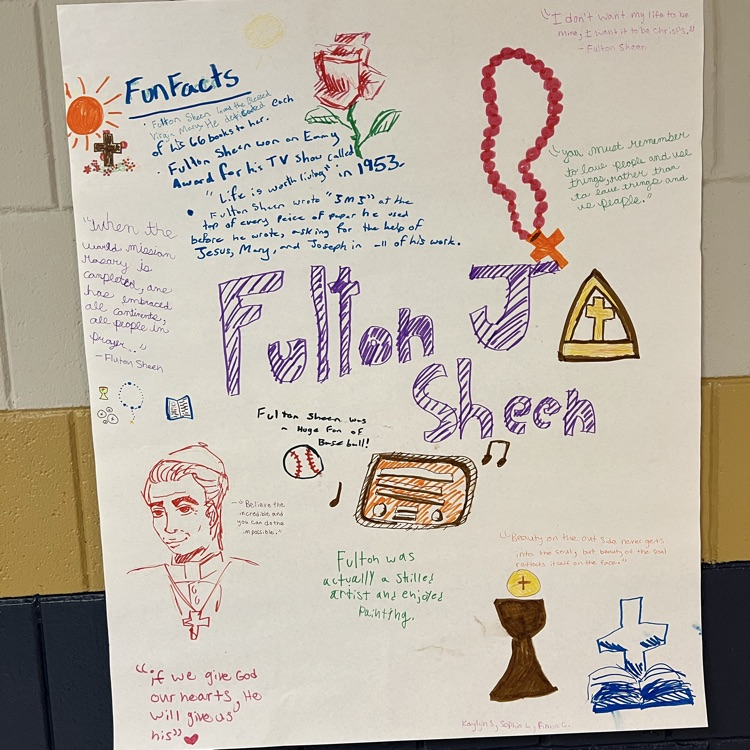 Fun Facts
• Fulton Sheen loved the Blessed
Virgin Mary. He dedicated each
of his 66 books to her.
• Fulton Sheen won an Emmy
Award for his TV show called
"Life is worth living" in 1953.
• Fulton Sheen wrote "JMJ" at the
top of every peice of paper he used
before he wrote, asking for the help of
Jesus, Mary, and Joseph in all of his work.
"I don't want my life to be
mine, I want it to be Christ's."
- Fulton Sheen
"you must remember
to love people and use
things, rather than
to love things and
use people."
"When the
world mission
rosary is
completed, one
has embraced
all continents,
all people in
prayer..."
- Fluton Sheen
Fulton J
Sheen
Fulton Sheen was
a Huge Fan of
Baseball!
"Believe the
incredible and
you can do the
impossible."
Fulton was
actually a skilled
artist and enjoyed
Painting.
"Beauty on the out side never gets
into the soul, but beauty of the soul
reflects itself on the face."
"if we give God
our hearts, He
will give us
his"
Kaylyn S, Sophia L,